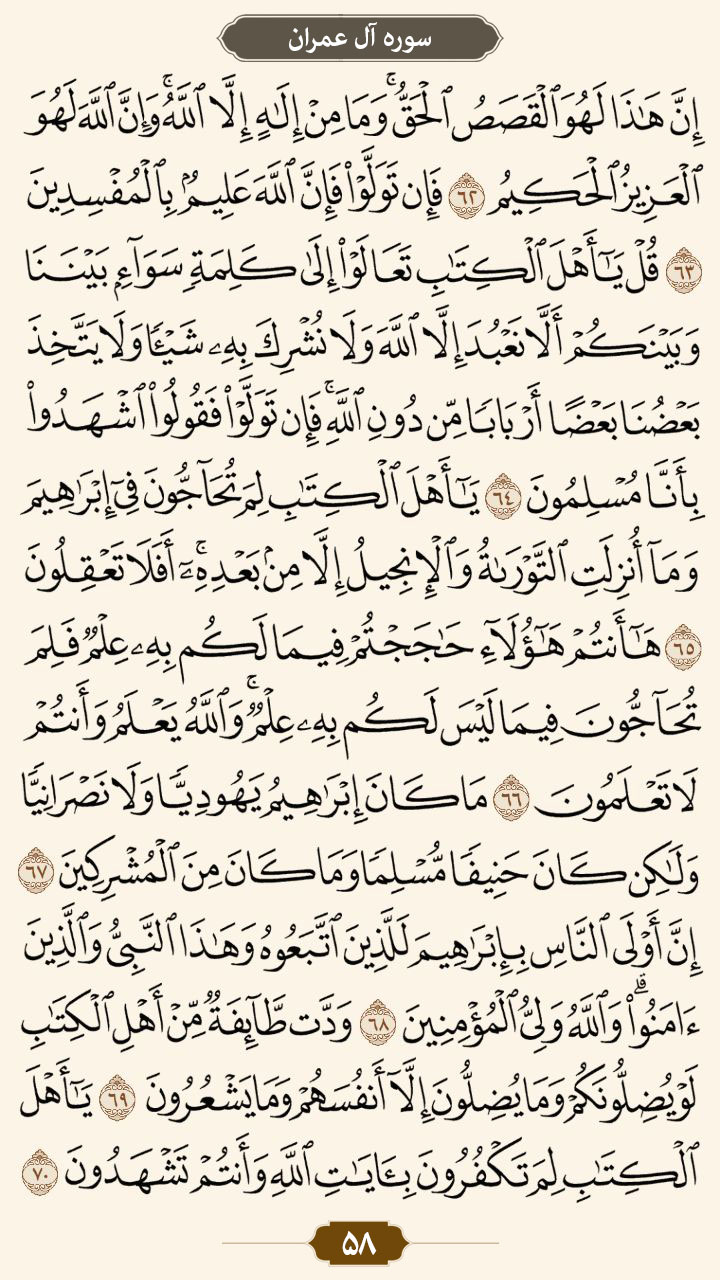 سوره آل عمران
إِنَّ هَـٰذَا لَهُوَ ٱلْقَصَصُ ٱلْحَقُّ ۚ وَمَا مِنْ إِلَـٰهٍ إِلَّا ٱللَّهُ ۚ وَإِنَّ ٱللَّهَ لَهُوَ
ٱلْعَزِيزُ ٱلْحَكِيمُ ٦٢ فَإِن تَوَلَّوْا۟ فَإِنَّ ٱللَّهَ عَلِيمٌۢ بِٱلْمُفْسِدِينَ
٦٣ قُلْ يَـٰٓأَهْلَ ٱلْكِتَـٰبِ تَعَالَوْا۟ إِلَىٰ كَلِمَةٍ سَوَآءٍۭ بَيْنَنَا
وَبَيْنَكُمْ أَلَّا نَعْبُدَ إِلَّا ٱللَّهَ وَلَا نُشْرِكَ بِهِۦ شَيْـًٔا وَلَا يَتَّخِذَ
بَعْضُنَا بَعْضًا أَرْبَابًا مِّن دُونِ ٱللَّهِ ۚ فَإِن تَوَلَّوْا۟ فَقُولُوا۟ ٱشْهَدُوا۟
بِأَنَّا مُسْلِمُونَ ٦٤ يَـٰٓأَهْلَ ٱلْكِتَـٰبِ لِمَ تُحَآجُّونَ فِىٓ إِبْرَٰهِيمَ
وَمَآ أُنزِلَتِ ٱلتَّوْرَىٰةُ وَٱلْإِنجِيلُ إِلَّا مِنۢ بَعْدِهِۦٓ ۚ أَفَلَا تَعْقِلُونَ
٦٥ هَـٰٓأَنتُمْ هَـٰٓؤُلَآءِ حَـٰجَجْتُمْ فِيمَا لَكُم بِهِۦ عِلْمٌ فَلِمَ
تُحَآجُّونَ فِيمَا لَيْسَ لَكُم بِهِۦ عِلْمٌ ۚ وَٱللَّهُ يَعْلَمُ وَأَنتُمْ
لَا تَعْلَمُونَ ٦٦ مَا كَانَ إِبْرَٰهِيمُ يَهُودِيًّا وَلَا نَصْرَانِيًّا
وَلَـٰكِن كَانَ حَنِيفًا مُّسْلِمًا وَمَا كَانَ مِنَ ٱلْمُشْرِكِينَ ٦٧
إِنَّ أَوْلَى ٱلنَّاسِ بِإِبْرَٰهِيمَ لَلَّذِينَ ٱتَّبَعُوهُ وَهَـٰذَا ٱلنَّبِىُّ وَٱلَّذِينَ
ءَامَنُوا۟ ۗ وَٱللَّهُ وَلِىُّ ٱلْمُؤْمِنِينَ ٦٨ وَدَّت طَّآئِفَةٌ مِّنْ أَهْلِ ٱلْكِتَـٰبِ
لَوْ يُضِلُّونَكُمْ وَمَا يُضِلُّونَ إِلَّآ أَنفُسَهُمْ وَمَا يَشْعُرُونَ ٦٩ يَـٰٓأَهْلَ
ٱلْكِتَـٰبِ لِمَ تَكْفُرُونَ بِـَٔايَـٰتِ ٱللَّهِ وَأَنتُمْ تَشْهَدُونَ ٧٠
۵۸